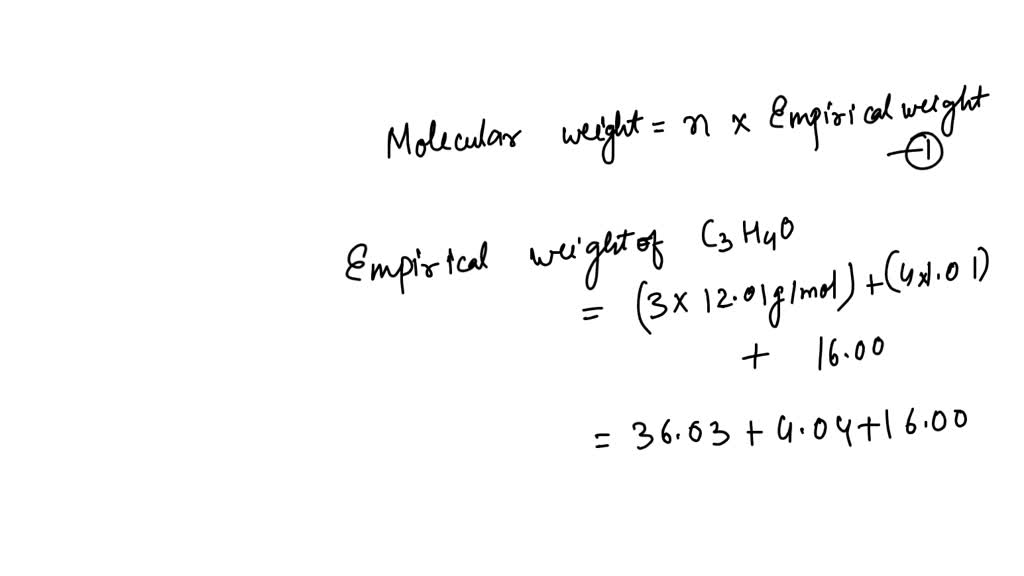 Molecular weight = n x Empirical weight
—①
Empirical weight of C₃H₄O
= (3 x 12.01g/mol) + (4x1.01)
+ 16.00
= 36.03 + 4.04 + 16.00